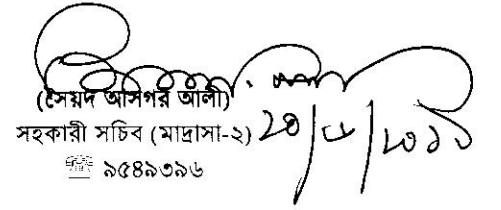 (সৈয়দ আসগর আলী)
সহকারী সচিব (মাদ্রাসা-২)
☏ ৯৫৪৯৩৯৬